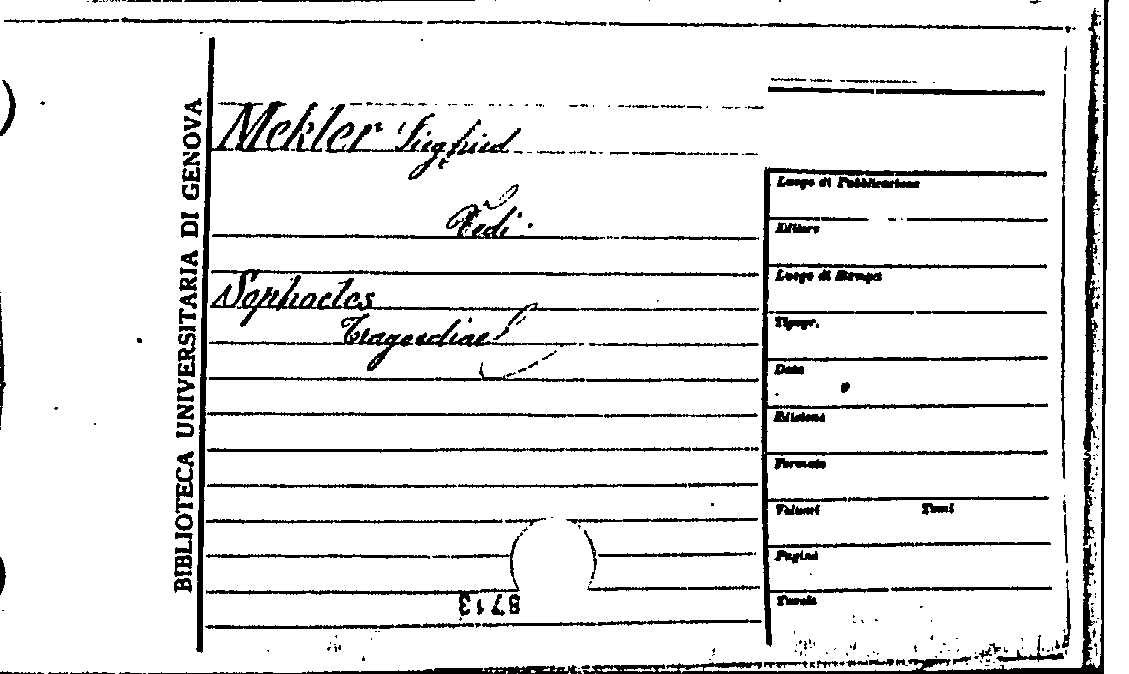 BIBLIOTECA UNIVERSITARIA DI GENOVA
Mekler Siegfried
Vedi:
Sophocles
Tragoediae
8713
Luogo di Pubblicazione
Editore
Luogo di Stampa
Tipogr.
Data
Edizione
Formato
Volumi Tomi
Pagine
Tavole